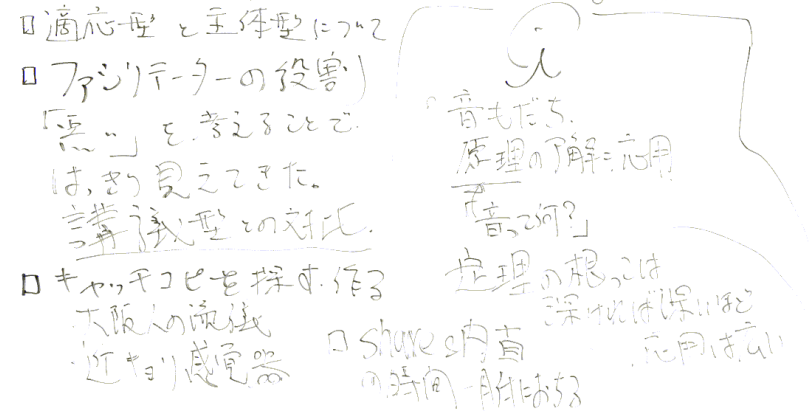 □ 適応型と主体型について
□ ファシリテーターの役割
「悪い」を考えることで
はっきり見えてきた。
講義型との対比.
□ キャッチコピーを探す.作る
・大阪人の流儀
・近キョリ感覚器
□ shareと内省
の時間 → 腑におちる
i
音もだち.
原理の了解=応用
「音って何?」
定理の根っこは
深ければ深いほど
応用は広い